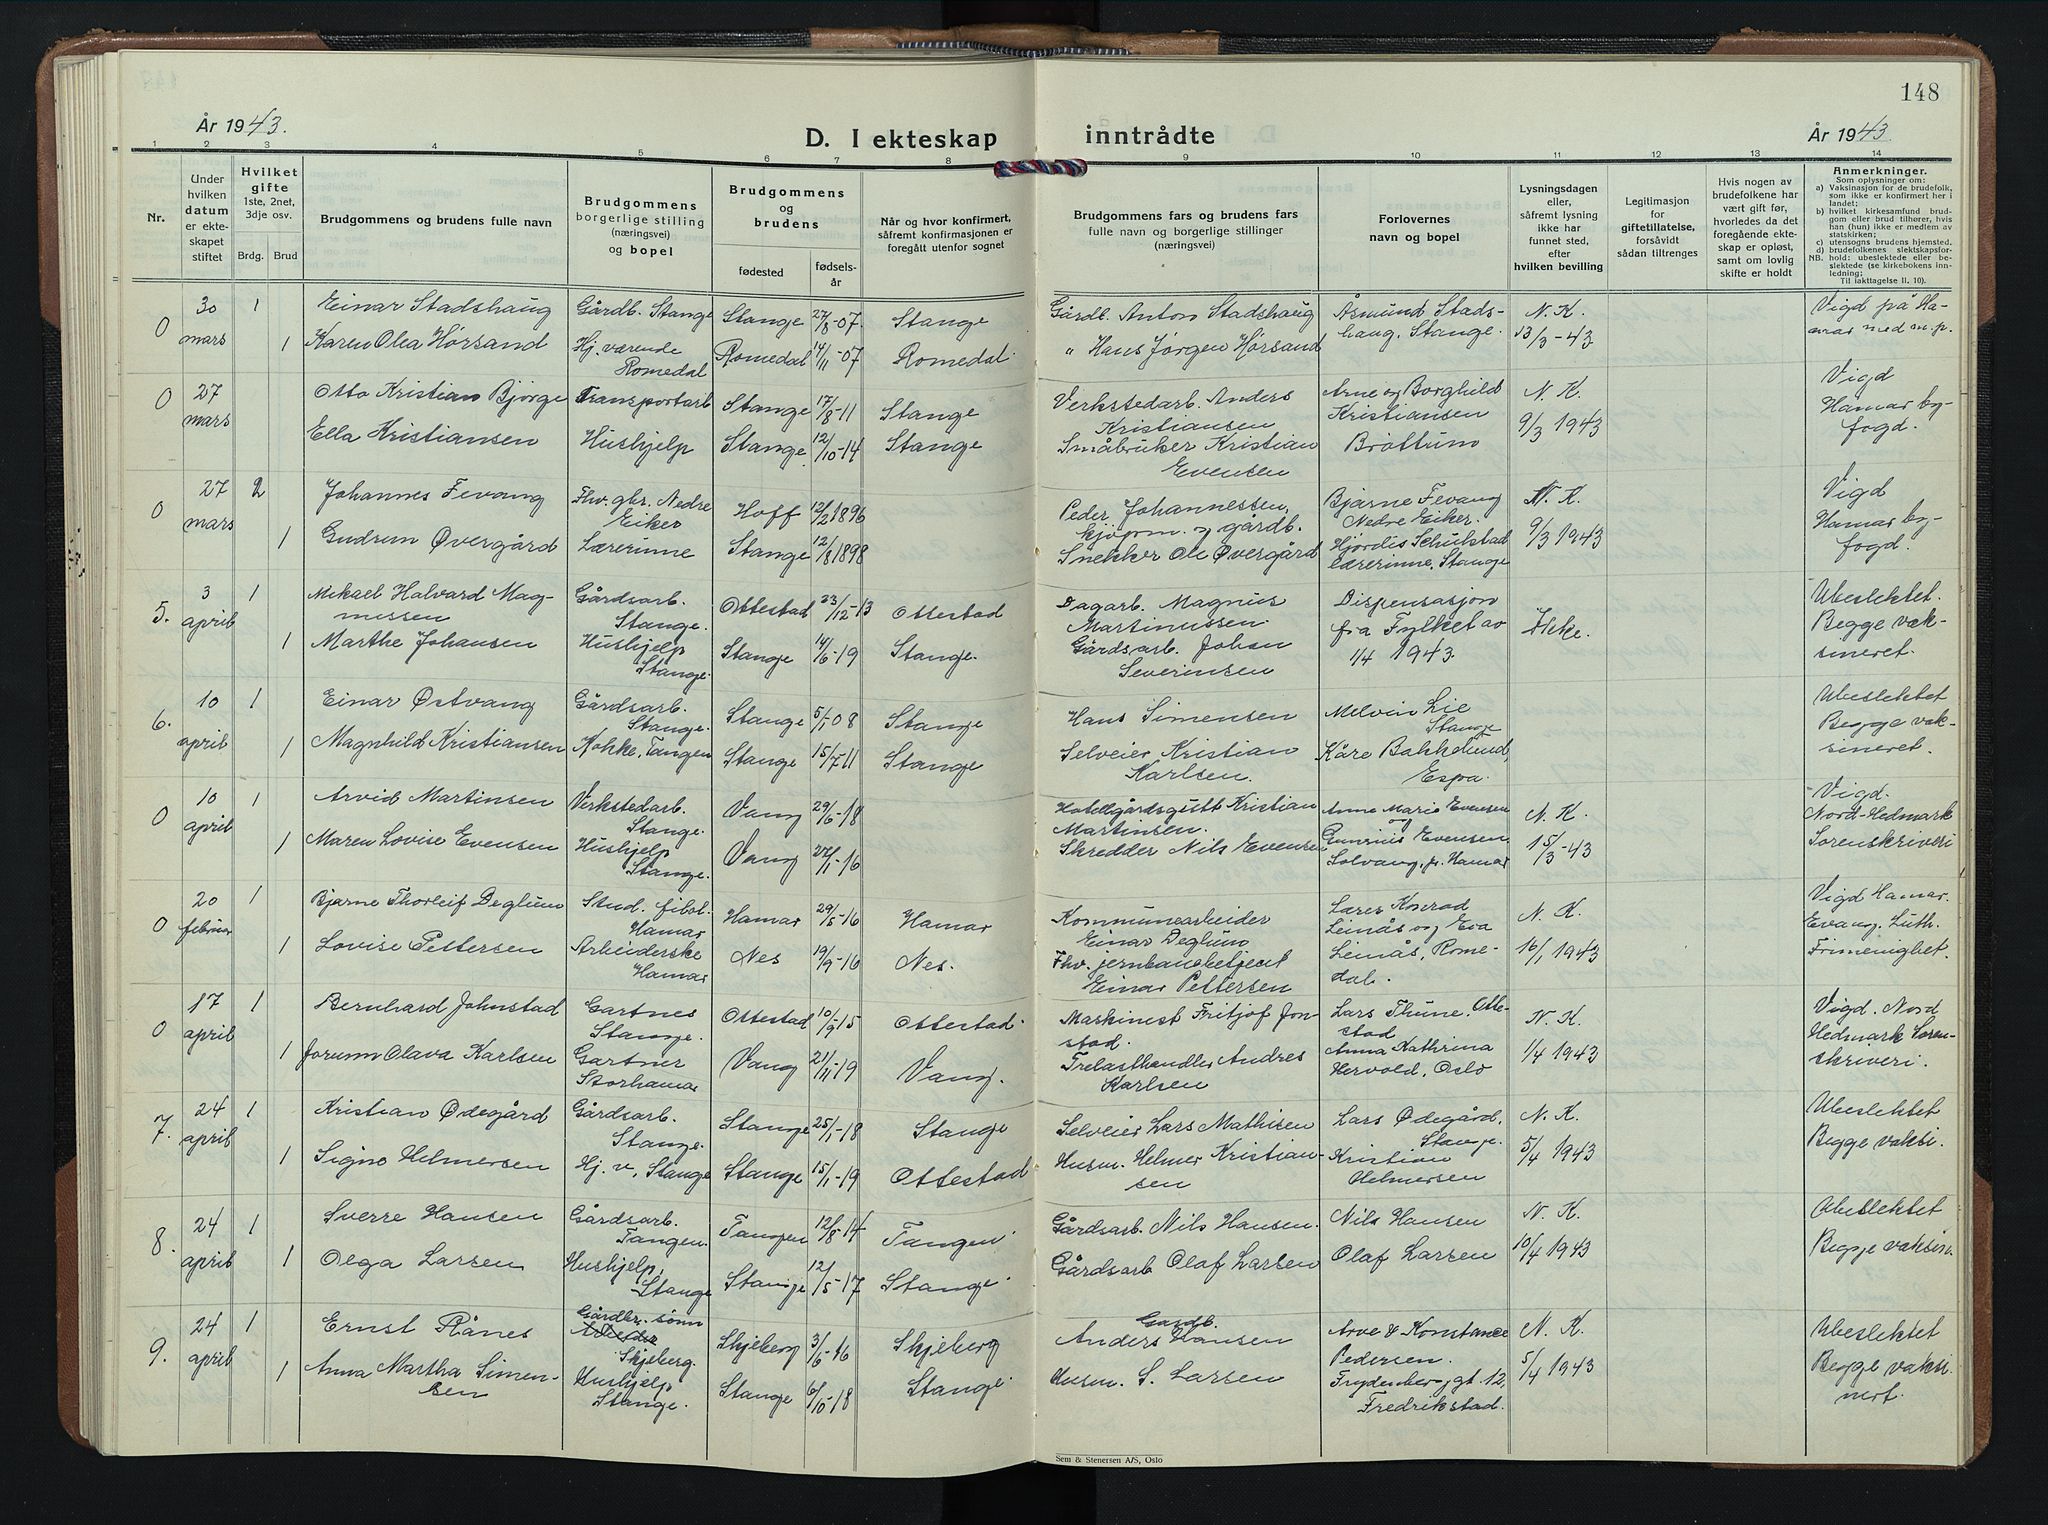 148
År 1943.
D. I ekteskap inntrådte
År 1943
1 2 3 4 5 6 7 8 9 10 11 12 13 14
Nr.
Under hvilken datum er ekteskapet stiftet
Hvilket gifte 1ste, 2net, 3dje osv.
Brdg. Brud
Brudgommens og brudens fulle navn
Brudgommens borgerlige stilling (næringsvei) og bopel
Brudgommens og brudens
fødested
fødselsår
Når og hvor konfirmert, såfremt konfirmasjonen er foregått utenfor sognet
Brudgommens fars og brudens fars fulle navn og borgerlige stillinger (næringsvei)
Forlovernes navn og bopel
Lysningsdagen eller, såfremt lysning ikke har funnet sted, efter hvilken bevilling
Legitimasjon for giftetillatelse, forsåvidt sådan tiltrenges
Hvis nogen av brudefolkene har vært gift før, hvorledes da det foregående ekteskap er opløst, samt om lovlig skifte er holdt
Anmerkninger.
Som oplysninger om:
a) Vaksinasjon for de brudefolk, som ikke er konfirmert her i landet;
b) hvilket kirkesamfund brudgom eller brud tilhører, hvis han (hun) ikke er medlem av statskirken;
c) utensogns brudens hjemsted.
d) brudefolkenes slektskapsforhold: ubeslektede eller beslektede (se kirkebokens innledning;
NB. Til iakttagelse II. 10).
0 30 mars 1 Einar Stadshaug Gårdb. Stange Stange 27/8-07. Stange Gårdb. Anton Stadshaug Åsmund Stadshaug, Stange. N. K. 13/3-43 Vigd på Hamar med m.p.
1 Karen Olea Hørsand Hj. værende Romedal Romedal 14/11-07 Romedal. " Hans Jørgen Hørsand
0 27 mars Otto Kristian Bjørge Transportarb Stange 17/8-11 Stange Verkstedarb. Anders Kristiansen Arne og Borghild Kristiansen Brøttum N. K. 9/3 1943 Vigd Hamar byfogd.
Ella Kristiansen Hushjelp Stange 12/10-14 Stange Småbruker Kristian Evensen
0 27 mars 2 Johannes Fevang Fhv. gbr. Nedre Eiker Hoff 12/2 1896 Peder Johannessen, kjøpm. og gårdb. Bjarne Fevang Nedre Eiker. N. K. 9/3 1943 Vigd Hamar byfogd.
1 Gudrun Øvergård Lærerinne Stange 12/8 1898 Snekker Ole Øvergård Hjørdis Schulstad lærerinne, Stange
5. 3 april 1 Mikael Halvard Magnussen Gårdsarb. Stange. Ottestad 23/12-13 Ottestad Dagarb. Magnus Martinussen. Dispensasjon fra Fylket av 1/4 1943. Ikke. Ubeslektet. Begge vaksineret.
1 Marthe Johansen Hushjelp Stange. Stange 14/6-19 Stange. Gårdsarb. Johan Severinsen
6. 10 april 1 Einar Østvang Gårdsarb. Stange. Stange 5/1-08 Stange Hans Simensen Melvin Lie Stange Ubeslektet Begge vaksineret.
1 Magnhild Kristiansen Kokke, Tangen Stange 15/7-11 Stange Selveier Kristian Karlsen. Kåre Bakkelund, Espa.
0 10 april 1 Arvid Martinsen Verkstedarb. Stange. Vang 29/6-18 Hotellgårdsgutt Kristian Martinsen. Anne Marie Evensen og N. K. 15/3-43 Vigd. Nord-Hedmark Sorenskriveri
1 Maren Lovise Evensen Hushjelp Stange. Vang 27/1-16 Skredder Nils Evensen Gunerius Evensen, Solvang, p. Hamar
0 20 februar 1 Bjarne Thorleif Deglum Stud. filol. Hamar Hamar 29/5-16 Hamar Kommunearbeider Einar Deglum Lærer Konrad Leinås og Eva Leinås, Romedal. N. K. 16/1 1943 Vigd Hamar. Evang. Luth. Frimenighet.
1 Lovise Pettersen Arbeiderske Hamar Nes 19/9-16 Nes. Fhv. jernbanebetjent Einar Pettersen
0 17 april 1 Bernhard Johnstad Gartner Stange. Ottestad 10/9-15 Ottestad. Maskinist Fritjof Jonstad. Lars Thune, Ottestad N. K. 1/4 1943 Vigd. Nord Hedmark Sorenskriveri.
1 Jorunn Olava Karlsen Gartner Storhamar Vang 21/11-19 Vang. Trelasthandler Andres Karlsen Anna Kathrina Hervold, Oslo
7. 24 april 1 Kristian Ødegård Gårdsarb. Stange. Stange 25/1-18 Stange Selveier Lars Mathisen Lars Ødegård, Stange. N. K. 5/4 1943 Ubeslektet Begge vaksi.
1 Signe Helmersen Hj. v, Stange Stange 15/1-19 Ottestad Husm. Helmer Kristiansen Kristian Helmersen
8. 24 april 1 Sverre Hansen Gårdsarb. Tangen. Tangen 12/8-14 Tangen Gårdsarb. Nils Hansen. Nils Hansen N. K. 10/4 1943 Ubeslektet Begge vaksin.
1 Olga Larsen Hushjelp, Stange Stange 12/5-17 Stange. Gårdsarb Olaf Larsen Olaf Larsen
9. 24 april 1 Ernst Rånes Gårdbr. sønn Skjeberg. Skjeberg 3/6-16 Skjeberg Gardb. Anders Hansen Arve & Konstance Pedersen. Frydenbergt. 12, Fredrikstad. N. K. 5/4 1943 Ubeslektet Begge vaksinert.
1 Anna Martha Simensen Hushjelp Stange. Stange 6/10-18 Stange. Husm. S. Larsen
Sem & Stenersen A/S, Oslo